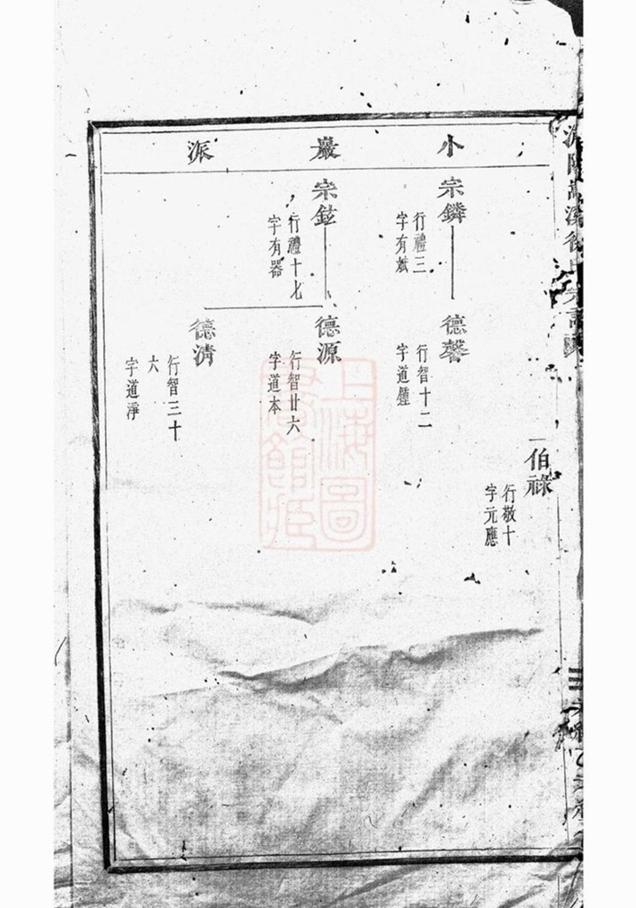 小巖派
伯祿
行敬十
字元應
宗鏻
行禮三
字有斌
德馨
行智十二
字道鍾
宗鉉
行禮十七
字有器
德源
行智廿六
字道本
德清
行智三十
六
字道淨
上海圖
書館藏